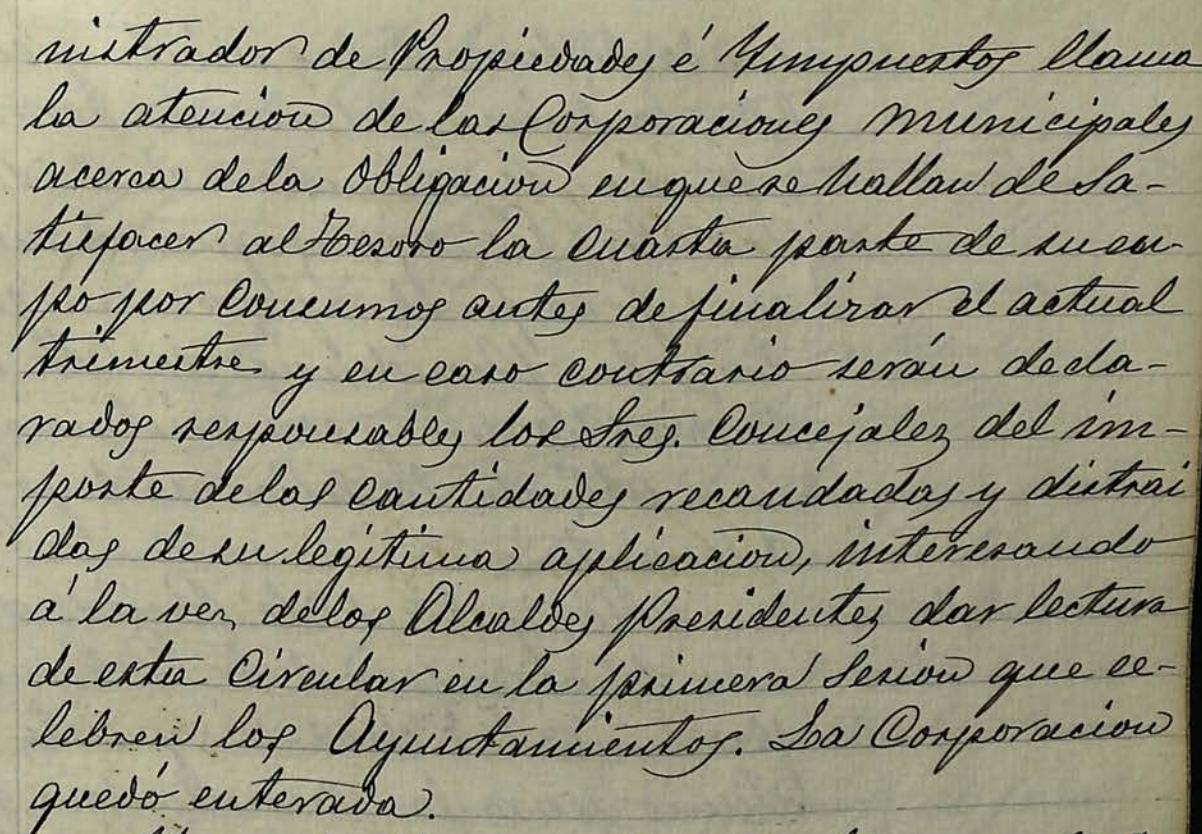 nistrador de Propiedades é Ympuestos llama
la atencion de las Corporaciones municipales
acerca de la Obligacion en que se hallan de Sa-
tisfacer al Tesoro la Cuarta parte de su cu-
po por Consumos antes de finalizar el actual
trimestre y en caso contrario serán decla-
rados responsables los Sres. Concejales del im-
porte de las Cantidades recaudadas y distrai
das de su legítima aplicacion, interesando
á la vez de los Alcaldes Presidentes dar lectura
de esta Circular en la primera Sesion que ce-
lebren los Ayuntamientos. La Corporacion
quedó enterada.